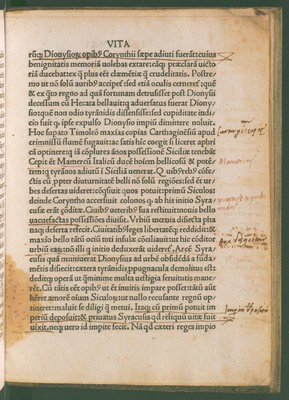 VITA
rũq; Dionysiog & opibꝰ Corynthii sæpe adiuti fuerãt: cuius
benignitatis memoriã uolebas extare: eãq; præclarã uicto
riã ducebat: ex q̃ plus eẽt clæmẽtiæ q̃ crudelitatis. Postre
mo ut nõ solũ auribꝰ acciperẽ sed etiã oculis cerneret: quẽ
& ex q̃to regno ad quã fortunam detrusisset post Dionysii
decessum cũ Hecata bellauit: q aduersatus fuerat Diony
sio: quẽ non odio tyrãnidis dissensisse: sed cupiditate indi
cio fuit q; ipse expulso Dionysio impiũ dimittere noluit.
Hoc supato Timoleõ maxias copias Carthaginẽsiũ apud
crimissũ flumẽ fugauit: ac satis hẽc coegit si liceret aphri
cã optinere: q iã cõplures ãnos possessionẽ Siciliæ tenebãt
Cepit & Mamercũ Italicũ ducẽ hoĩem bellicosũ & potẽ
tem: q tyrãnos adiutũ ĩ Siciliã uenerat. Quibꝰ rebꝰ cõfe
ctis cũ ppter diuturnitatẽ belli nõ solũ regiões: sed & ur
bes desertas uideret: cõqsiuit quos potuit: primũ Siculos
deinde Corintho accersiuit colonos q; ab his initio Syra
cusæ erãt cõditæ. Ciuibꝰ ueteribꝰ sua restituit: nouis bello
uacuefactas possessiões diuisit. Urbiũ moenia disiecta pha
naq; deserta refecit. Ciuitatibꝰ leges libertatẽq; reddidit: &
maxío bello tãtũ ocii toti insulæ cõciliauit: ut hic cõditor
urbiũ earũ nõ illi q initio deduxerãt uideret. Arcẽ Syra
cusis quã muniuerat Dionysius ad urbẽ obsidẽdã a fũda
mẽtis disiecit: cætera tyrãnidis ppugnacula demolitus est:
deditq; operã ut q̃minime multa uestigia seruitutis mane
rẽt. Cũ tãtis eẽt opibꝰ ut & inuitis impare posset: tãtũ aũt
hẽret amorẽ oĩum Siculog: ut nullo recusante regnũ op
tineret: maluit se diligi q̃ metui. Itaq; cũ primũ potuit im
periũ deposuit: & priuatus Syracusis qd reliquũ uitæ fuit
uixit. neq; uero id impite fecit. Nã qd cæteri reges impio